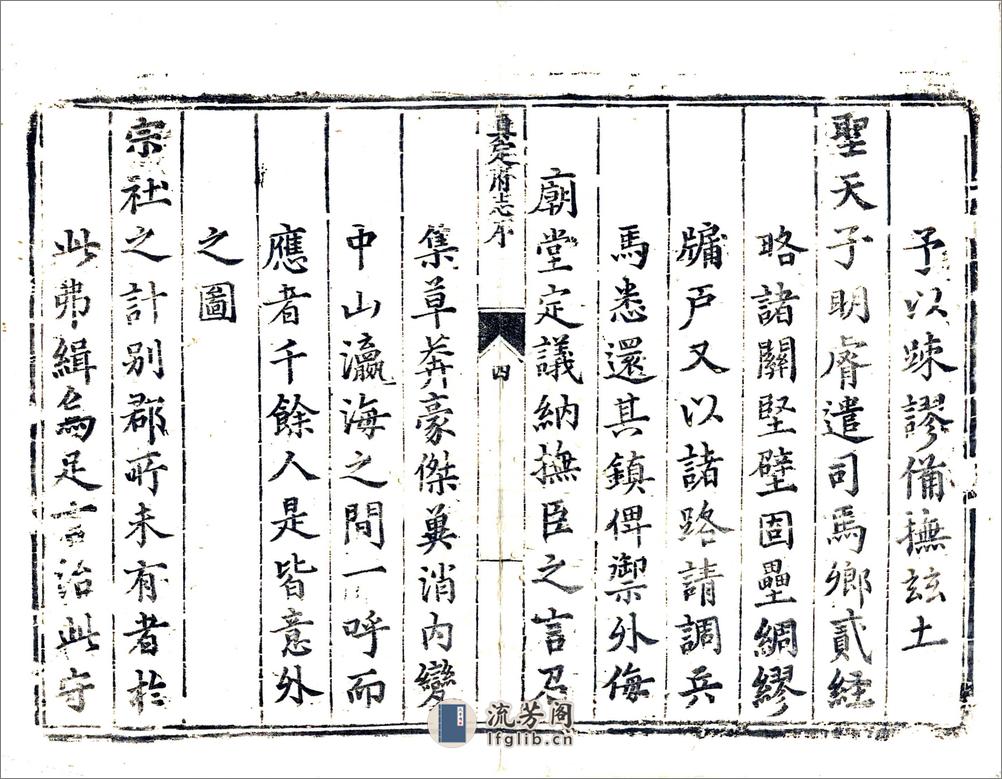 予以踈謬備撫玆土
聖天子明膚遣司馬鄉貳經
略諸關堅壁固壘綢繆
牖戸又以諸路請調兵
馬悉還其鎮俾禦外侮
廟堂定議納撫臣之言召
真定府志序
四
集草莽豪傑冀消内變
中山瀛海之間一呼而
應者千餘人是皆意外
之圖
宗社之計别郡所未有者於
此弗緝烏足言治此守
流芳阁
lfglib.cn